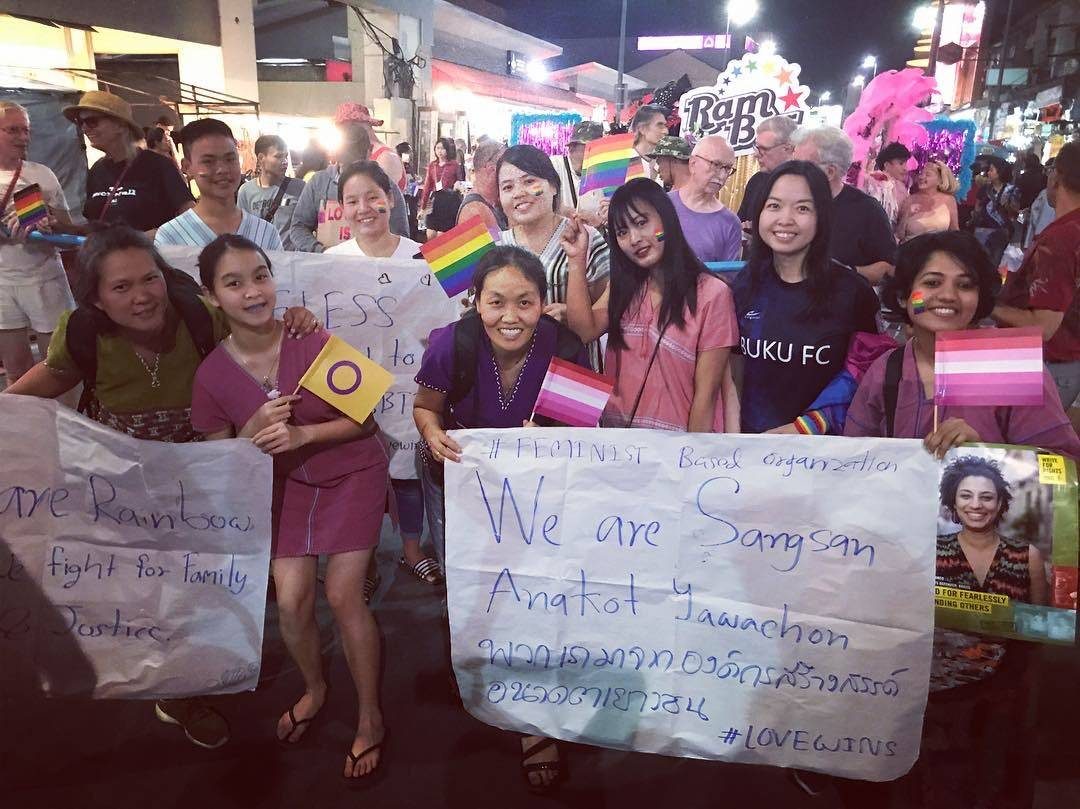 Ram
Bar
LOVE
IS
ESS
t to
BT
BUKU FC
are Rainbow
fight for Family
& Justice.
# FEMINIST Based organization
We are Sangsan
Anakot Yawachon
พวกเรามาจากองค์กรสร้างสรรค์
อนาคตเยาวชน
#LOVEWINS
WRITE FOR
RIGHTS
D FOR FEARLESSLY
NDING OTHERS